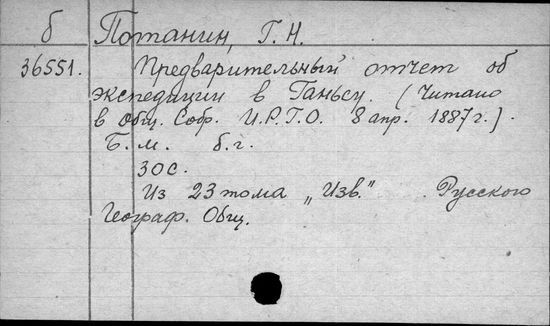 б Потанин, Г. Н.
36551. Предварительный отчет об
экспедиции в Ганьсу. (Читано
в общ. Собр. И.Р.Г.О. 8 апр. 1887 г.).
Б. м. б. г.
30 с.
Из 23 тома „Изв." Русского
Географ. Общ.